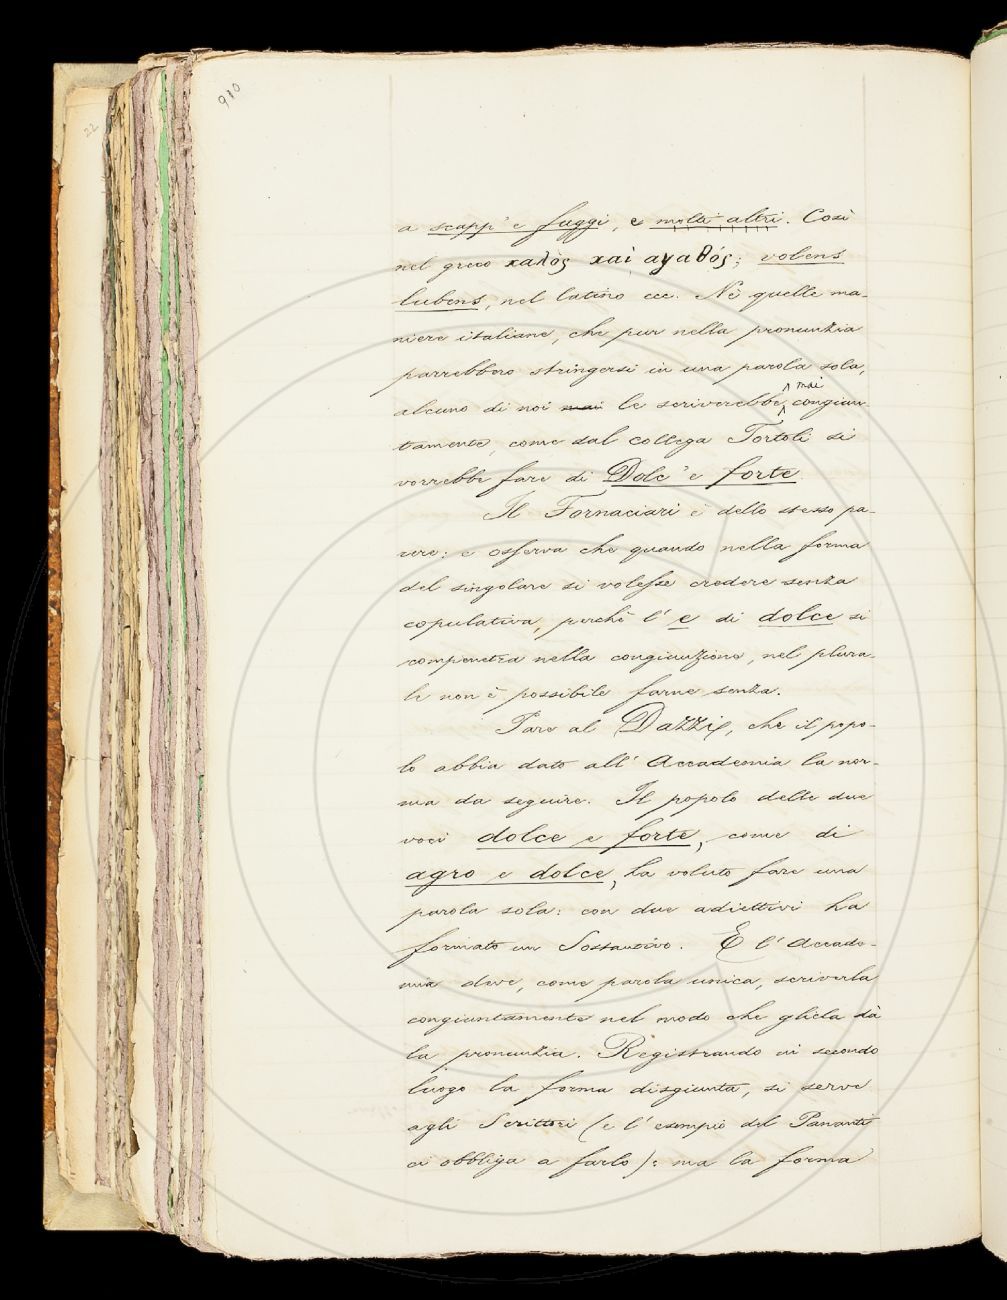 980
22
a scapp' e fuggi, e molti altri. Così
nel greco καλὸς καὶ αγαθός; volens
lubens, nel latino ecc. Nè quelle ma-
niere italiane, che pur nella pronunzia
parrebbero stringersi in una parola sola,
alcuno di noi mai le scriverebbe, mai congiun-
tamente, come dal collega Tortoli si
vorrebbe fare di Dolc' e forte.
Il Fornaciari è dello stesso pa-
rere: e osserva che quando nella forma
del singolare si volesse credere senza
copulativa, perchè l' e di dolce si
compenetra nella congiunzione, nel plura-
le non è possibile farne senza.
Pare al Dazzi, che il popo-
lo abbia dato all' Accademia la nor-
ma da seguire. Il popolo delle due
voci dolce e forte, come di
agro e dolce, ha voluto fare una
parola sola: con due adiettivi ha
formato un Sostantivo. E l' Accade-
mia deve, come parola unica, scriverla
congiuntamente nel modo che gliela dà
la pronunzia. Registrando in secondo
luogo la forma disgiunta, si serve
agli Scrittori (e l' esempio del Pananti
ci obbliga a farlo): ma la forma